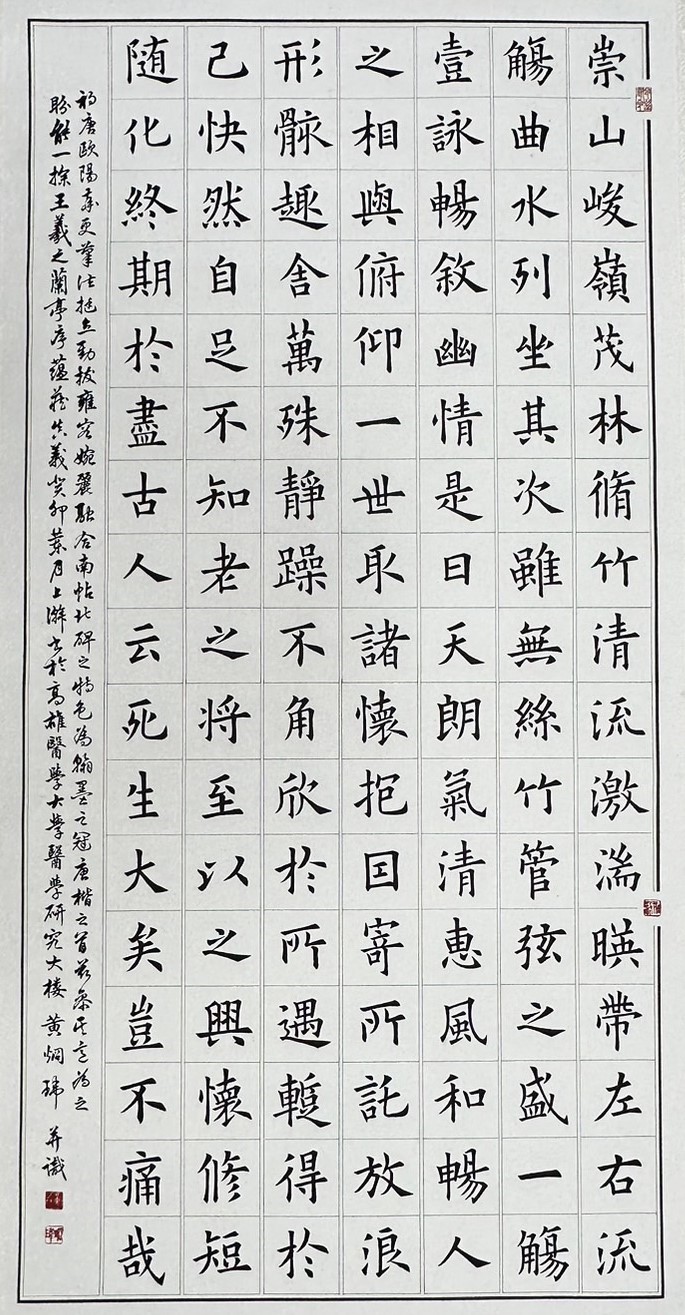 崇山峻嶺茂林脩竹清流激湍暎帶左右流
觴曲水列坐其次雖無絲竹管弦之盛一觴
壹詠暢敘幽情是日天朗氣清惠風和暢人
之相與俯仰一世取諸懷抱囙寄所託放浪
形骸趣舍萬殊靜躁不角欣於所遇蹔得於
己快然自足不知老之將至以之興懷修短
随化終期於盡古人云死生大矣豈不痛哉
初唐歐陽率更筆法挺立勁拔雍容婉麗融合南帖北碑之特色為翰墨之冠唐楷之首茲參其意為之
盼能一探王羲之蘭亭序蘊藏真義癸卯葉月上澣書於高雄醫學大學醫學研究大樓 黃炯 并識